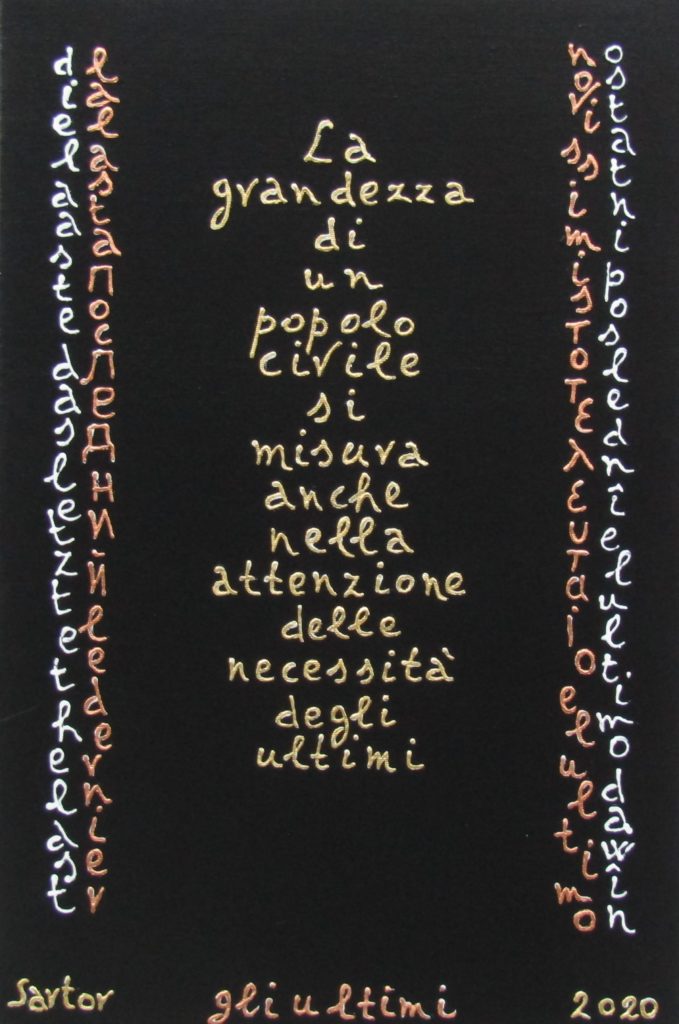 dielaastedasletztethelast
lalastaпоследнийledernier
La
grandezza
di
un
popolo
civile
si
misura
anche
nella
attenzione
delle
necessità
degli
ultimi
novissimisτοτελευταιοelultimo
ostatniposlednîelultimodawîn
Sartor
gli ultimi
2020